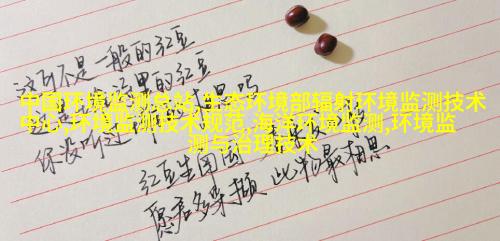 这可不是一般的红豆
这里的红豆
中国环境监测总站,生态环境部辐射环境监测技术
中心,环境监测技术规范,海洋环境监测,环境监
测与治理技术
你没听过
红豆生南国
愿君多采撷 此物最相思